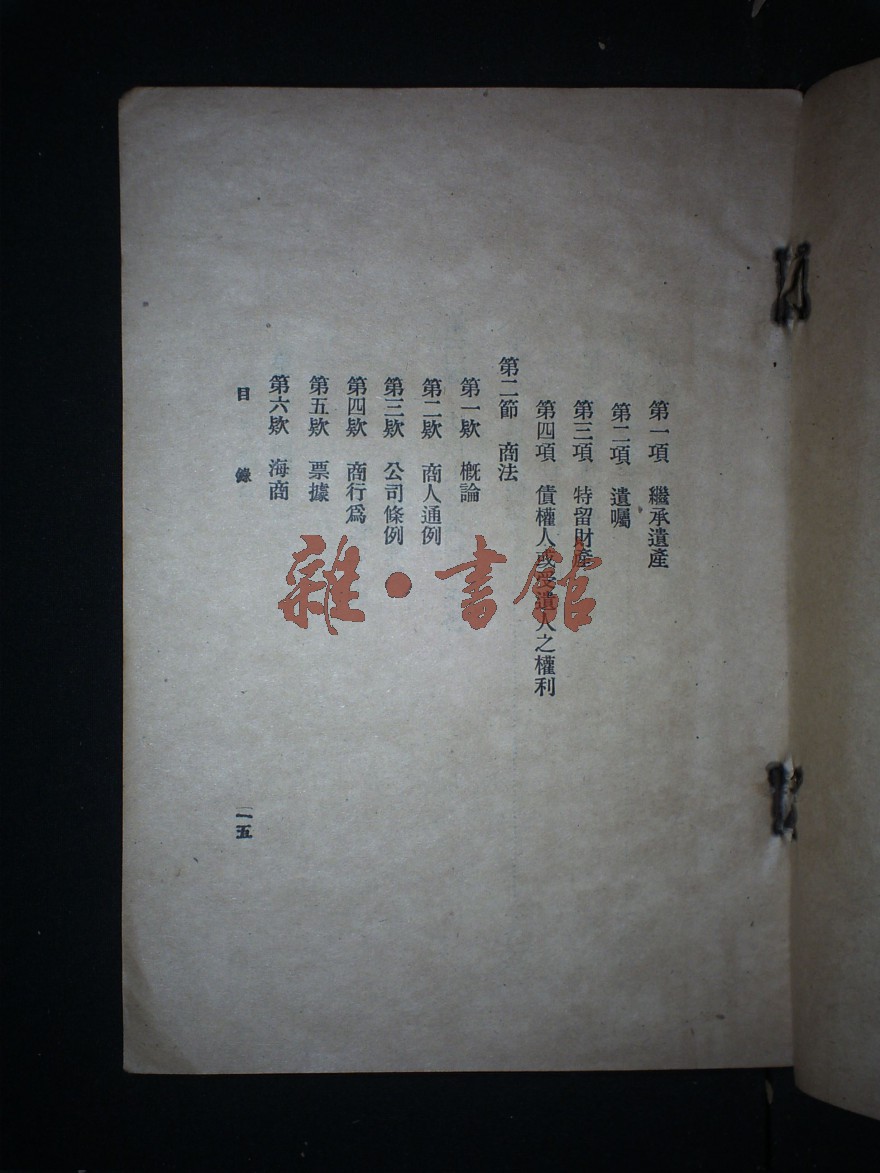 第一項　繼承遺產
第二項　遺囑
第三項　特留財產
第四項　債權人或受遺人之權利
第二節　商法
第一欵　槪論
第二欵　商人通例
第三欵　公司條例
第四欵　商行爲
第五欵　票據
第六欵　海商
目　錄
一五
雜・書館